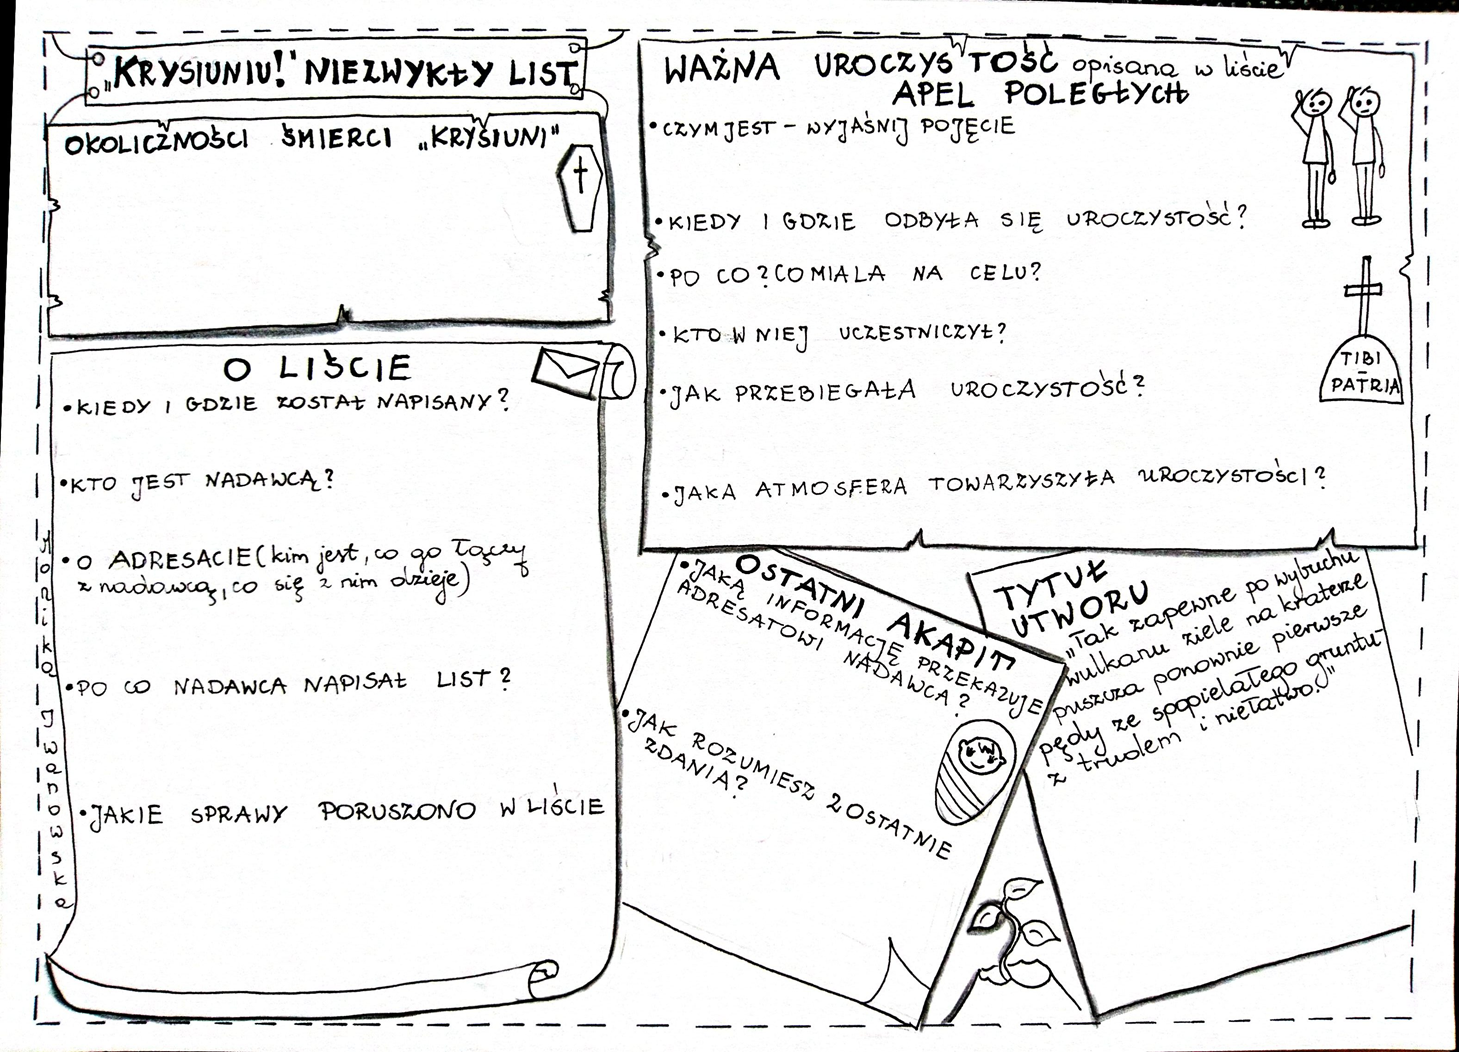 „KRYSIUNIU!" NIEZWYKŁY LIST
OKOLICZNOŚCI ŚMIERCI „KRYSIUNI"
O LIŚCIE
•KIEDY I GDZIE ZOSTAŁ NAPISANY?
•KTO JEST NADAWCĄ?
•O ADRESACIE (kim jest, co go łączy
z nadawcą, co się z nim dzieje)
•PO CO NADAWCA NAPISAŁ LIST?
•JAKIE SPRAWY PORUSZONO W LIŚCIE
Monika Iwanowska
WAŻNA UROCZYSTOŚĆ opisana w liście
APEL POLEGŁYCH
•CZYM JEST – WYJAŚNIJ POJĘCIE
•KIEDY I GDZIE ODBYŁA SIĘ UROCZYSTOŚĆ?
•PO CO? CO MIALA NA CELU?
•KTO W NIEJ UCZESTNICZYŁ?
•JAK PRZEBIEGAŁA UROCZYSTOŚĆ?
•JAKA ATMOSFERA TOWARZYSZYŁA UROCZYSTOŚCI?
TIBI
–
PATRIA
OSTATNI AKAPIT
•JAKĄ INFORMACJĘ PRZEKAZUJE
ADRESATOWI NADAWCA?
•JAK ROZUMIESZ 2 OSTATNIE
ZDANIA?
TYTUŁ
UTWORU
„Tak zapewne po wybuchu
wulkanu ziele na kraterze
puszcza ponownie pierwsze
pędy ze spopielałego gruntu-
z trudem i niełatwo."